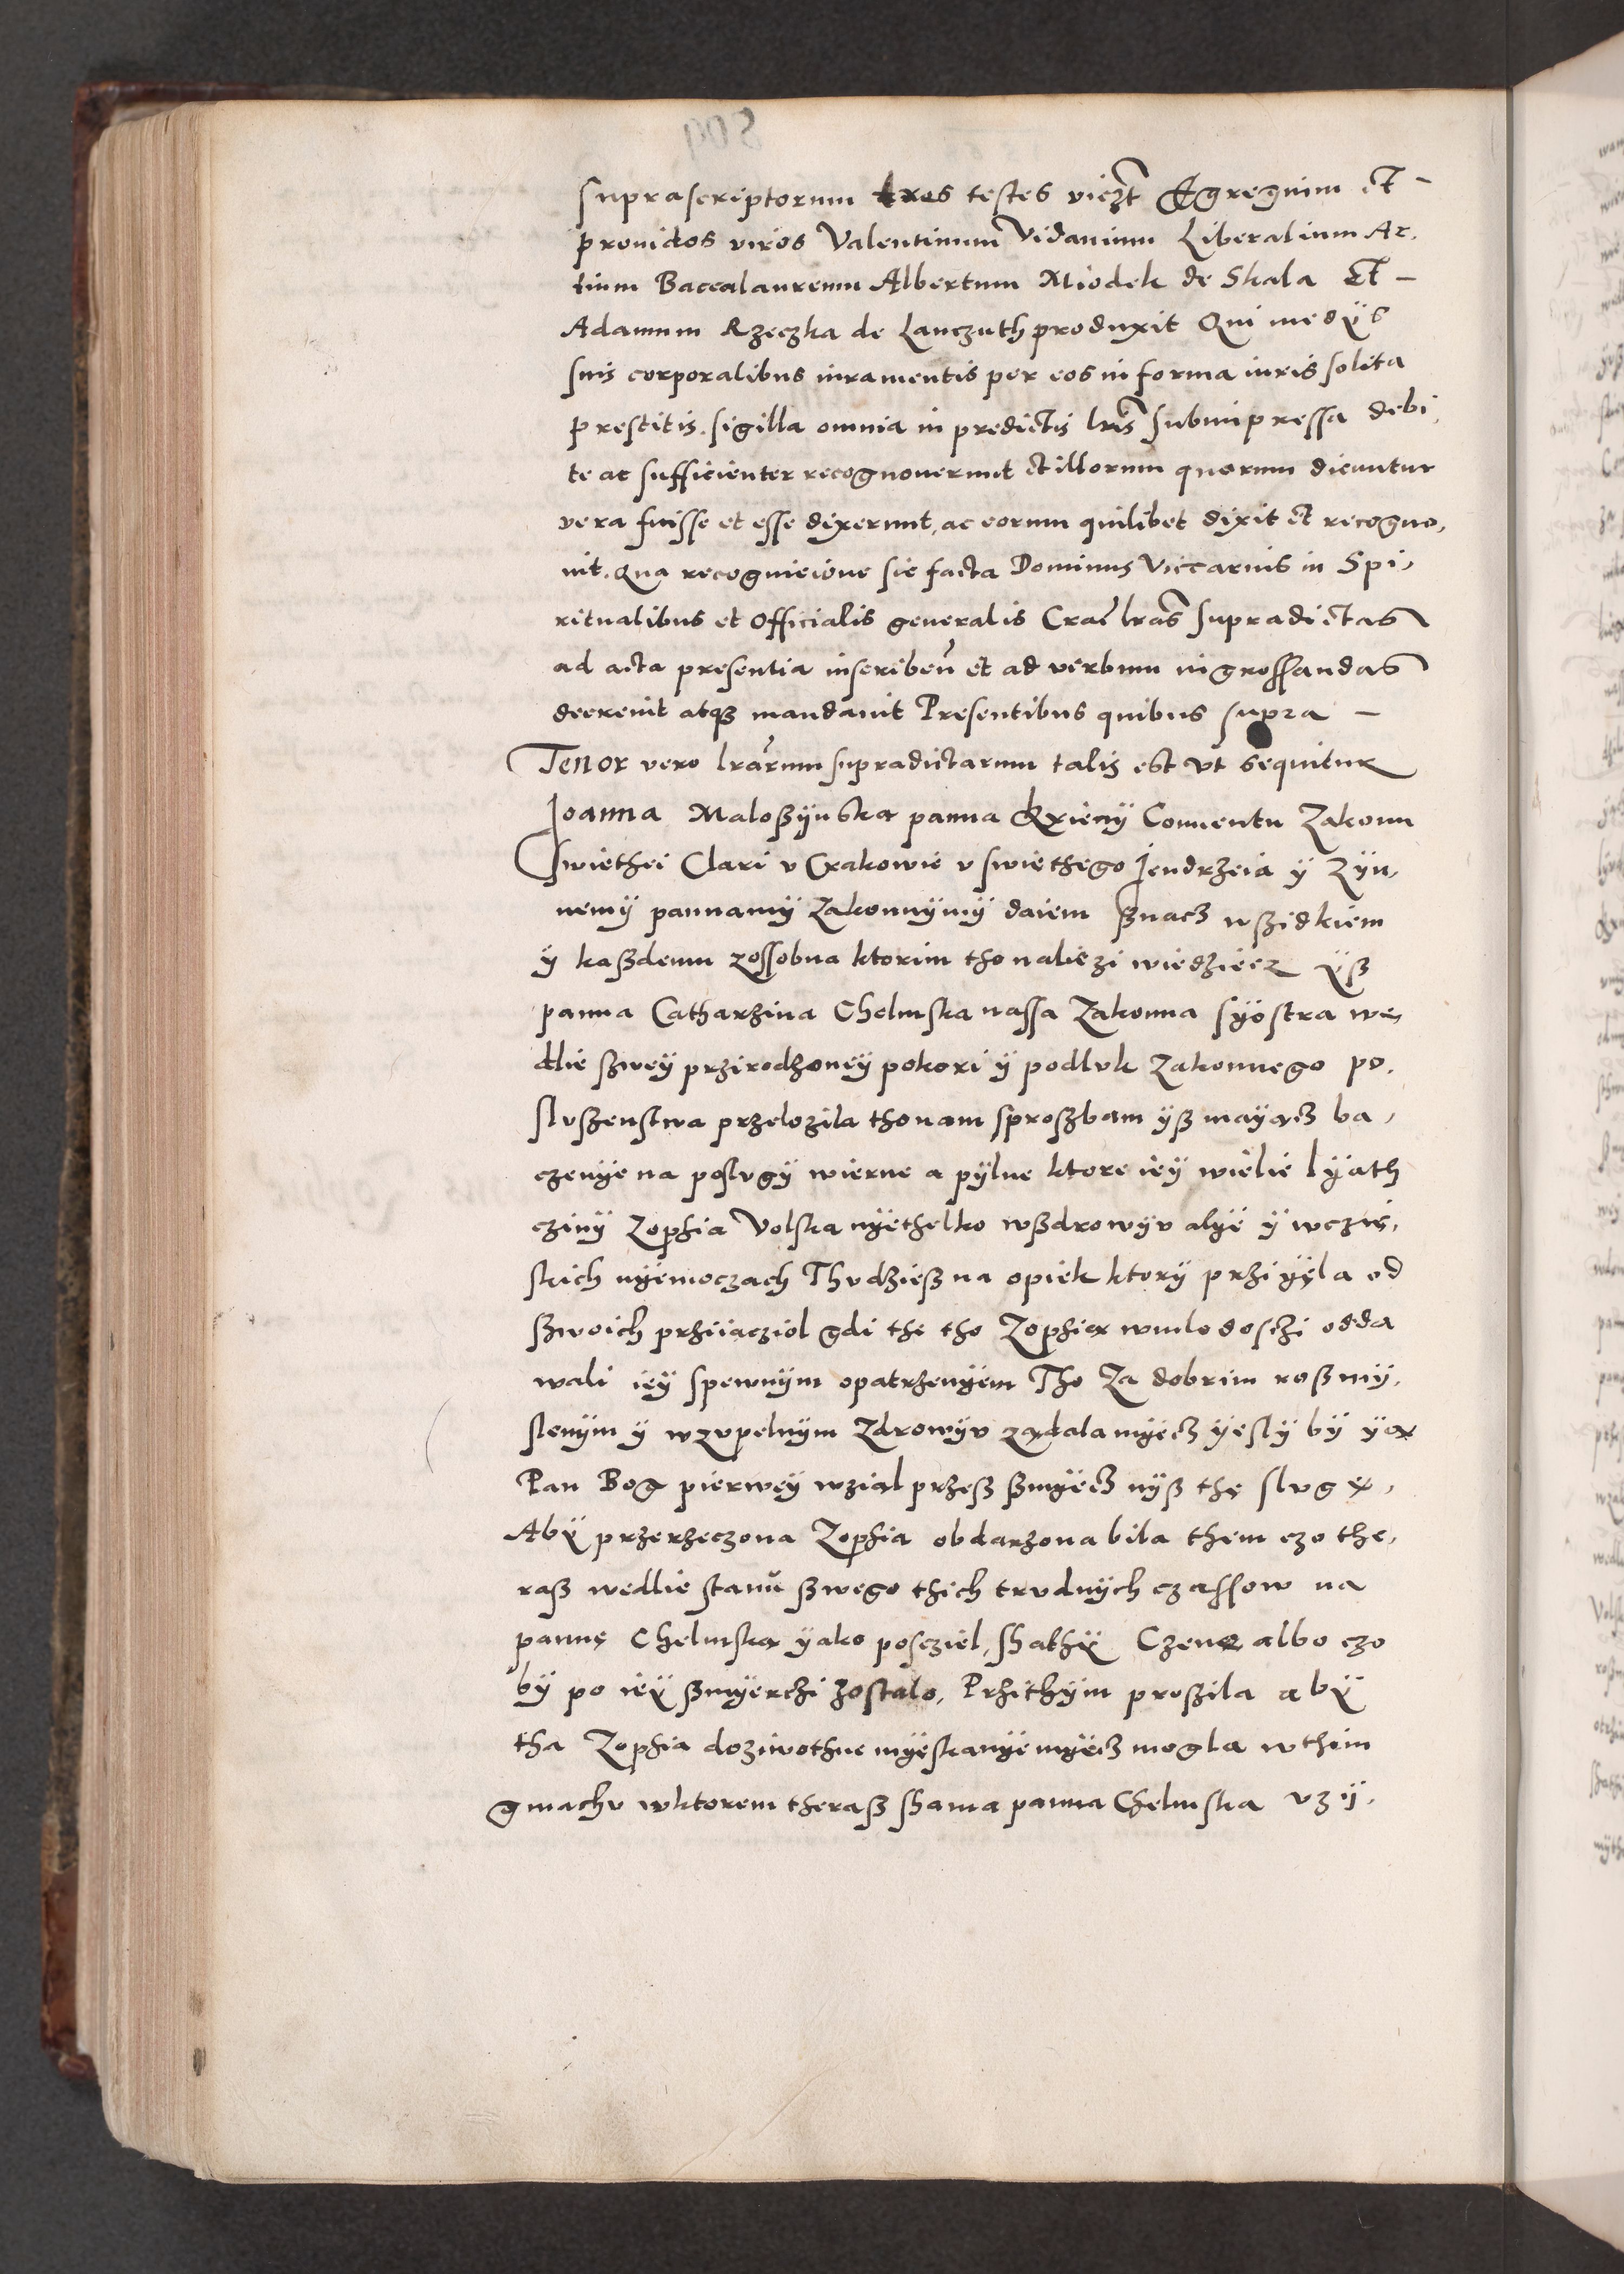 suprascriptorum tres testes viczt Egregium et –
prouidos viros Valentinum Vidanium Liberalium Ar,
tium Baccalaureum Albertum Miodek de Skala Et –
Adamum Rzeczka de Lanczuth produxit Qui medÿs
suis corporalibus iuramentis per eos in forma iuris solita
prestitis. sigilla omnia in predictis lris subimpressa debi,
te ac sufficienter recognouerunt et illorum quorum dicuntur
vera fuisse et esse dixerunt, ac eorum quilibet dixit et recogno,
uit. Qua recognicione sic facta Dominus Viccarius in Spi,
ritualibus et Officialis generalis Crac lras supradictas
ad acta presentia inscriben et ad verbum ingrossandas
decreuit atqз mandauit Presentibus quibus supra –
Tenor vero lrarum supradictarum talis est vt sequitur
Joanna Maloßÿnska panna Kxieny Conuentu Zakonu
Swiethei Clari v Crakowie v swiethego Jendrzeia ÿ Zÿn,
nemÿ pannamÿ Zakonnÿmÿ daiem ßnacz wßidkiem
ÿ kaßdemu zossobna ktorim tho naliezi wiedziecz ÿß
panna Catharzina Chelmska nassa Zakonna sÿostra we,
dlie szweÿ przirodzoneÿ pokori ÿ podluk Zakonnego po,
sluszenstwa przelozila tho nam sproszbam ÿß maÿącz ba,
czenÿe na poslvgÿ wierne a pÿlne ktore ieÿ wielie lÿath
czinÿ Zophia Volska nÿethelko wßdrowÿv alÿe ÿ wczię,
skich nÿemoczach Thvdzieß na opiek ktorÿ przÿięla od
szwoich prziiacziol gdi the tho Zophią wmlodosczi odda
wali ieÿ spewnÿm opatrzenÿem Tho Za dobrim roßmÿ,
slenÿm ÿ wzvpelnÿm Zdrowÿv ządala mÿecz ÿeslÿ bÿ ÿą
Pan Bog pierweÿ wzial przeß szmÿecz nÿß thę slvgę,
Abÿ przerzeczona Zophia obdarzona bila them czo the,
raß wedlie stanu szwego thich trvdnÿch czassow na
pannę Chelmską ÿako posciel, shathÿ Czenę albo czo
bÿ po ieÿ szmÿerczi zostalo, Przithÿm prosila abÿ
tha Zophia doziwothne mÿeskanÿe mÿecz mogla wthim
gmachv wktorem theraß shama panna Chelmska vzÿ,